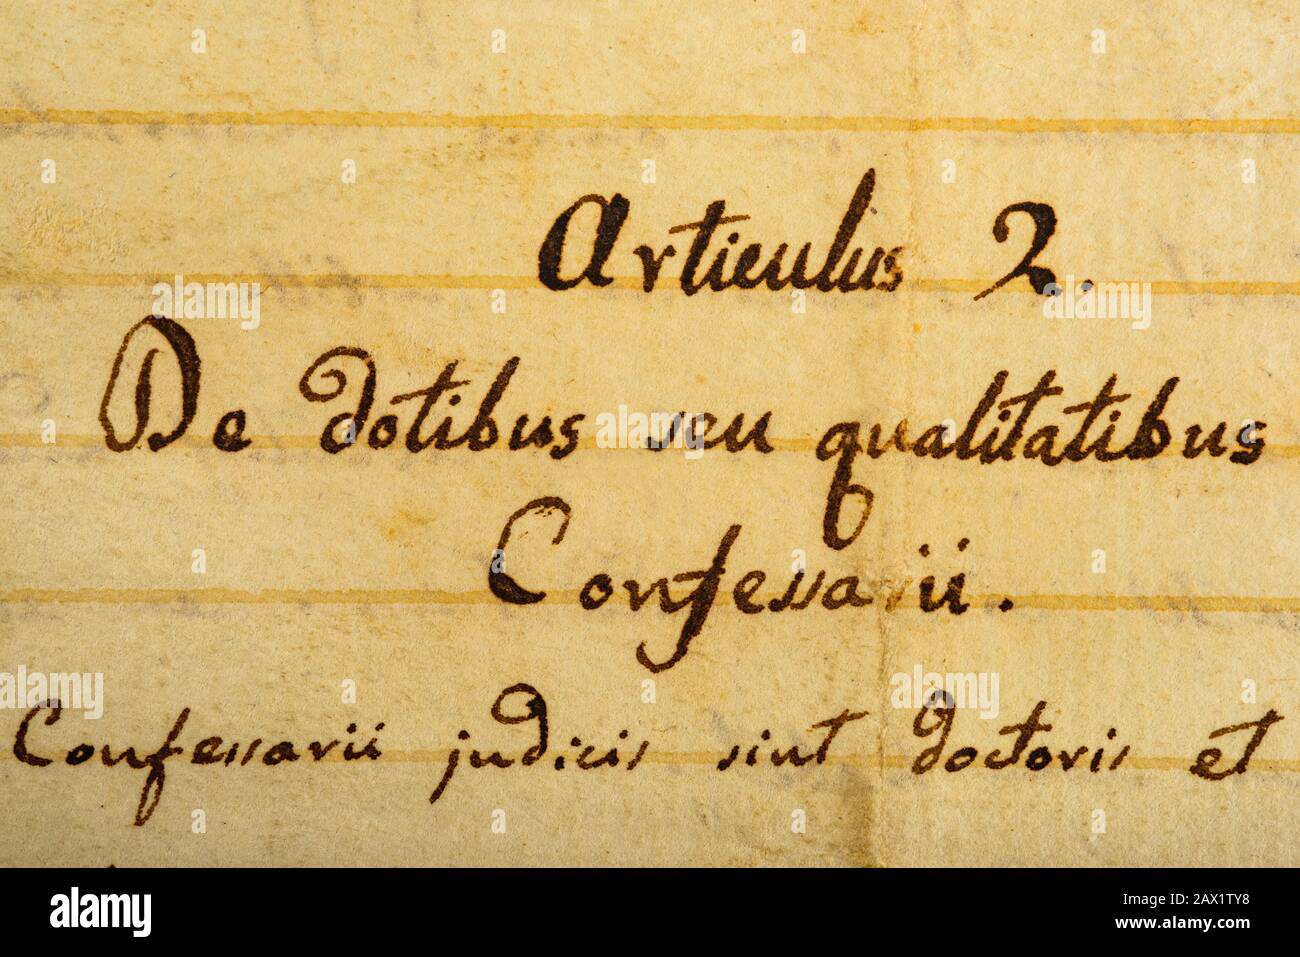 Articulus 2.
De dotibus seu qualitatibus
Confessarii.
Confessarii judicis sint doctoris et
alamy
Image ID: 2AX1TY8
www.alamy.com